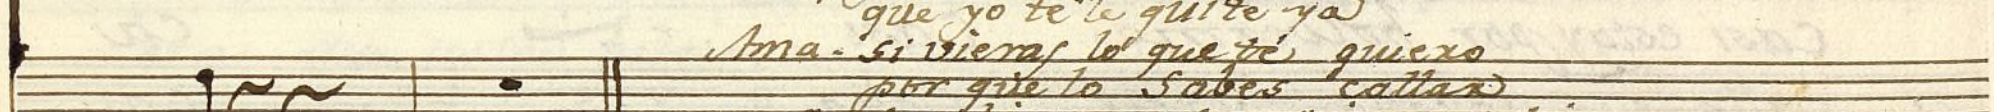 que yo te le quite ya
Ama - si vieras lo que te quiero
por que lo sabes callar